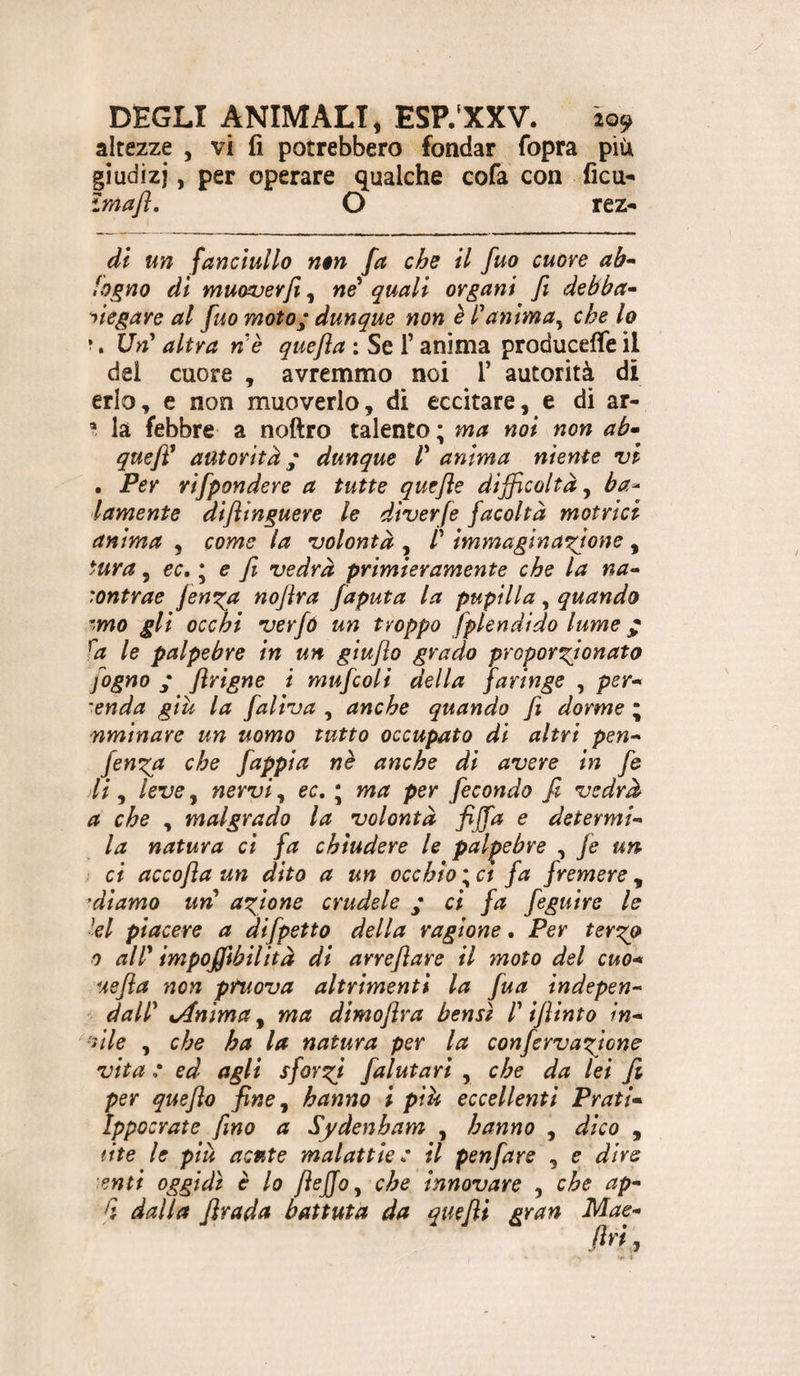 DEGLI ANIMALI, ESP. XXV. 209
altezze , vi ſi potrebbero fondar ſopra più
giudizj , per operare qualche coſa con ſicu-
maſt. O rez-
di un fanciullo non fa che il ſuo cuore ab-
ſogno di muoverſi, ne' quali organi ſi debba-
iegare al ſuo moto; dunque non è l'anima, che lo
. Un' altra n'è queſta : Se l' anima produceſſe il
del cuore , avremmo noi l' autorità di
erlo, e non muoverlo, di eccitare, e di ar-
la febbre a noſtro talento; ma noi non ab-
queſt' autorità ; dunque l' anima niente vi
. Per riſpondere a tutte queſte difficoltà, ba-
lamente diſtinguere le diverſe facoltà motrici
anima , come la volontà , l' immaginazione ,
tura, ec. ; e ſi vedrà primieramente che la na-
contrae ſenza noſtra ſaputa la pupilla, quando
mo gli occhi verſo un troppo ſplendido lume ;
fa le palpebre in un giuſto grado proporzionato
ſogno ; ſtrigne i muſcoli della faringe , per-
enda giù la ſaliva , anche quando ſi dorme ;
nminare un uomo tutto occupato di altri pen-
ſenza che ſappia nè anche di avere in ſe
li, leve, nervi, ec. ; ma per ſecondo ſi vedrà
a che , malgrado la volontà fiſſa e determi-
la natura ci fa chiudere le palpebre , ſe un
ci accoſta un dito a un occhio; ci fa fremere,
diamo un' azione crudele ; ci fa ſeguire le
el piacere a diſpetto della ragione. Per terzo
o all' impoſſibilità di arreſtare il moto del cuo-
ueſta non pruova altrimenti la ſua indepen-
dall' Anima, ma dimoſtra bensì l' iſtinto in-
ile , che ha la natura per la conſervazione
vita : ed agli sforzi ſalutari , che da lei ſi
per queſto fine, hanno i più eccellenti Prati-
Ippocrate fino a Sydenham , hanno , dico ,
tite le più acute malattie : il penſare , e dire
enti oggidì è lo ſteſſo, che innovare , che ap-
ſi dalla ſtrada battuta da queſti gran Mae-
ſtri,